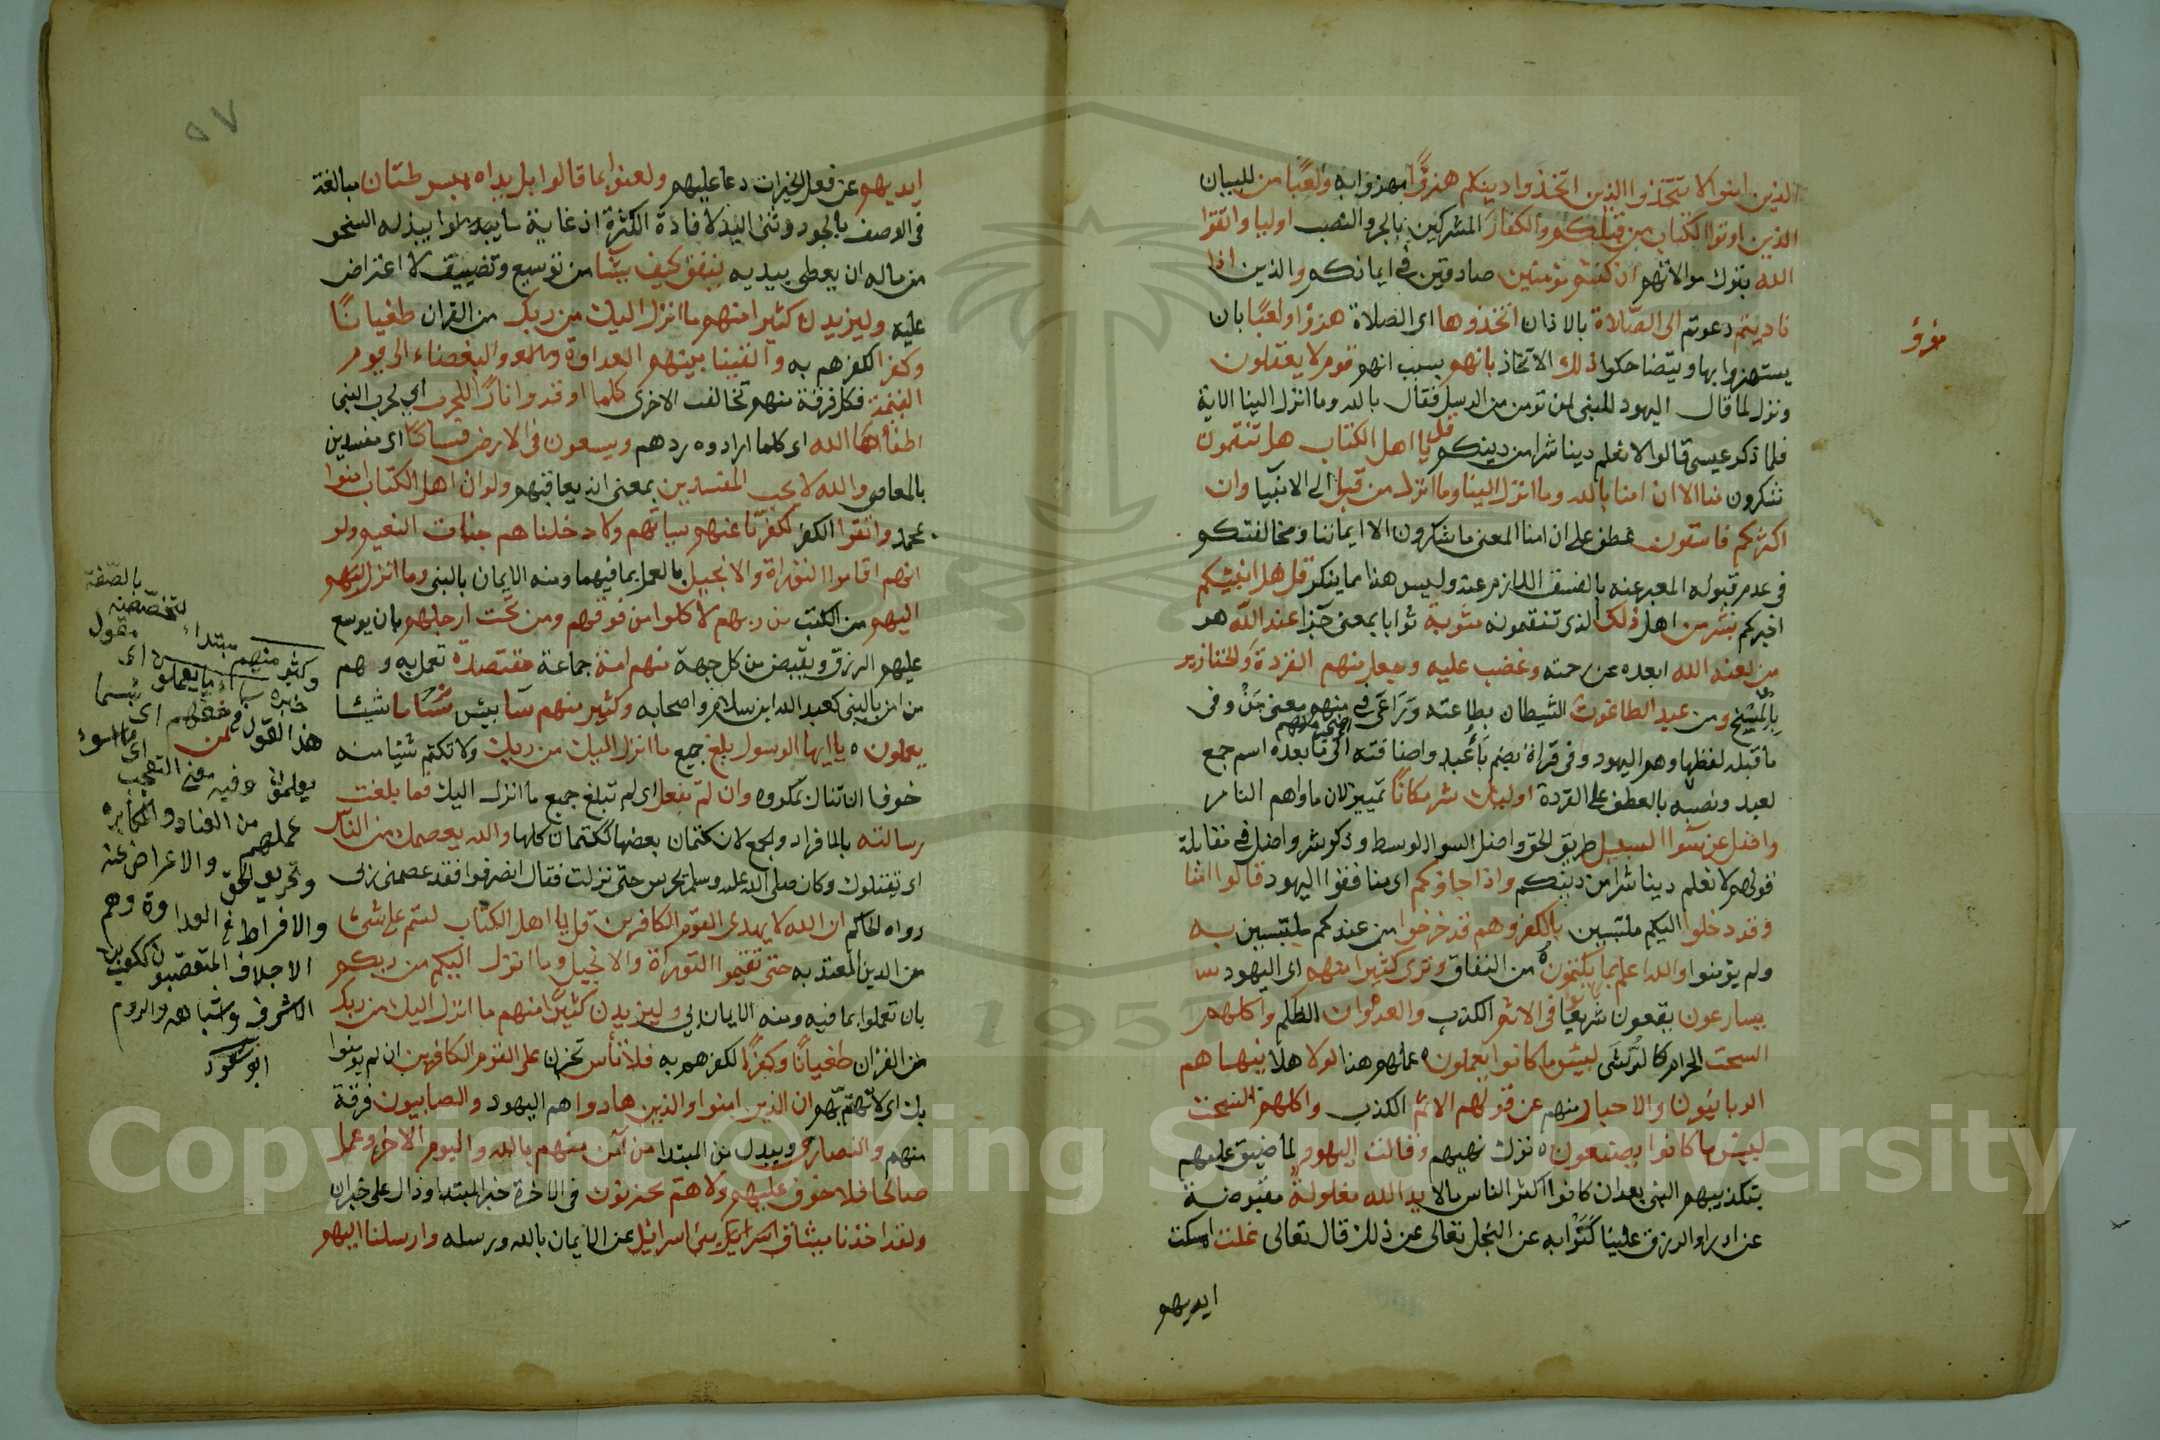 الذين امنوا لا تتخذوا الذين اتخذوا دينكم هزؤًا مهزوا به ولعبًا من للبيان
الذين اوتوا الكتاب من قبلكم والكفار المشركين بالجر والنصب اوليا واتقوا
الله بترك موالاتهم ان كنتم مؤمنين صادقين في ايمانكم والذين اذا
ناديتم دعوتم الى الصّلاة بالاذان اتخذوها اى الصلاة هزؤا ولعبًا بان
يستهزوا بها ويتضاحكوا ذلك الاتخاذ بانهم بسبب انهم قوم لا يعقلون
ونزل لما قال اليهود للنبى لمن تومن من الرسل فقال بالله وما انزل الينا الاية
فلما ذكر عيسى قالوا لا نعلم دينا شرا من دينكم قل يا اهل الكتاب هل تنقمون
تنكرون منا الا ان امنا بالله وما انزل الينا وما انزل من قبل الى الانبيا وان
اكثركم فاسقون عطف على ان امنا المعنى ما تنكرون الا ايماننا ومخالفتكم
في عدم قبوله المعبر عنه بالفسق اللازم عنه وليس هذا مما ينكر قل هل انبئكم
اخبركم بشر من اهل ذلك الذى تنقمونه مثوبة ثوابا بمعنى جزا عند الله هو
من لعنه الله ابعده عن رحمته وغضب عليه وجعل منهم القردة والخنازير
بالمسخ ومن عبد الطاغوت الشيطان بطاعته وراعى في منهم معنى من وفى
ما قبله لفظها وهم اليهود وفى قراة بضم با عبد واضافته الى ما بعده اسم جمع
لعبد ونصبه بالعطف على القردة اوليك شر مكانًا تمييز لان ماواهم النار
واضل عن سوا السبيل طريق الحق واصل السوا الوسط وذكر شر واضل في مقابلة
قولهم لا نعلم دينا شرا من دينكم واذا جاؤكم اى منافقوا اليهود قالوا امنا
وقد دخلوا اليكم ملتبسين بالكفر وهم قد خرجوا من عندكم ملتبسين به
ولم يؤمنوا والله اعلم بما يكتمون من النفاق وترى كثيرا منهم اى اليهود
يسارعون يقعون سريعًا فى الاثم الكذب والعدوان الظلم واكلهم
السحت الحرام كالرُّشَى لبيس ما كانوا يعملون عملهم هذا لولا هلا ينهاهم
الربانيون والاحبار منهم عن قولهم الاثم الكذب واكلهم السحت
لبيس ما كانوا يصنعون ه ترك نهيهم وقالت اليهود لما ضيق عليهم
بتكذيبهم النبى بعد ان كانوا اكثر الناس مالا يد الله مغلولة مقبوضة
عن ادرار الرزق علينا كَنَّوْا به عن البخل تعالى عن ذلك قال تعالى غلت امسكت
ايديهم
٥٧
ايديهم عن فعل الخيرات دعا عليهم ولعنوا بما قالوا بل يداه مبسوطتان مبالغة
فى الوصف بالجود وثنى اليد لافادة الكثرة اذ غاية ما يبذله السخى
من ماله ان يعطى بيديه ينفق كيف يشا من توسيع وتضييق لا اعتراض
عليه وليزيدن كثيرا منهم ما انزل اليك من ربك من القران طغيانًا
وكفرا لكفرهم به والقينا بينهم العداوة والبغضاء الى يوم
القيمة فكل فرقة منهم تخالف الاخرى كلما اوقدوا نارًا للحرب اي لحرب النبى
اطفأها الله اى كلما ارادوه ردهم ويسعون فى الارض فسادًا اى مفسدين
بالمعاصى والله لا يحب المفسدين بمعنى انه يعاقبهم ولو ان اهل الكتاب امنوا
بمحمد واتقوا الكفر لكفرنا عنهم سياتهم ولادخلناهم جنات النعيم ولو
انهم اقاموا التوراة والانجيل بالعمل بما فيهما ومنه الايمان بالنبى وما انزل
اليهم من الكتب من ربهم لاكلوا من فوقهم ومن تحت ارجلهم بان يوسع
عليهم الرزق ويفيض من كل جهة منهم امة جماعة مقتصدة تعمل به وهم
من امن بالنبى كعبد الله ابن سلام واصحابه وكثير منهم سا بيس ما شيئا
يعملون ه يا ايها الرسول بلغ جميع ما انزل اليك من ربك ولا تكتم شيئا منه
خوفا ان تنال بمكروه وان لم تفعل اى لم تبلغ جميع ما انزل اليك فما بلغت
رسالته بالافراد والجمع لان كتمان بعضها ككتمان كلها والله يعصمك من الناس
اى يقتلوك وكان صلى الله عليه وسلم يحرس حتى نزلت فقال انصرفوا فقد عصمنى ربى
رواه الحاكم ان الله لا يهدى القوم الكافرين قل يا اهل الكتاب لستم على شئ
من الدين المعتد به حتى تقيموا التوراة والانجيل وما انزل اليكم من ربكم
بان تعملوا بما فيه ومنه الايمان بي وليزيدن كثيرًا منهم ما انزل اليك من ربك
من القران طغيانًا وكفرًا لكفرهم به فلا تأس تحزن على القوم الكافرين ان لم يومنوا
بك اى لا تهتم بهم ان الذين امنوا والذين هادوا هم اليهود والصابيون فرقة
منهم والنصارى ويبدل من المبتدا من آمن منهم بالله واليوم الاخر وعمل
صالحا فلا خوف عليهم ولا هم يحزنون فى الاخرة خبر المبتدا ودال على خبر ان
ولقد اخذنا ميثاق بنى اسرائيل عن الايمان بالله ورسله وارسلنا اليهم
بالصّفة
لتخصصه
وكثير منهم مبتداء
خبره ساء ما يعملون
هذا القول
يعلمون وفيه معنى التعجب
عملهم من العناد والمكابره
وتحريف الحق والاعراض عنه
والافراط في العداوة وهم
الاجلاف المتعصبون ككعب بن
الاشرف واشباهه والروم
ابو سعود
1957
Copyright © King Saud University